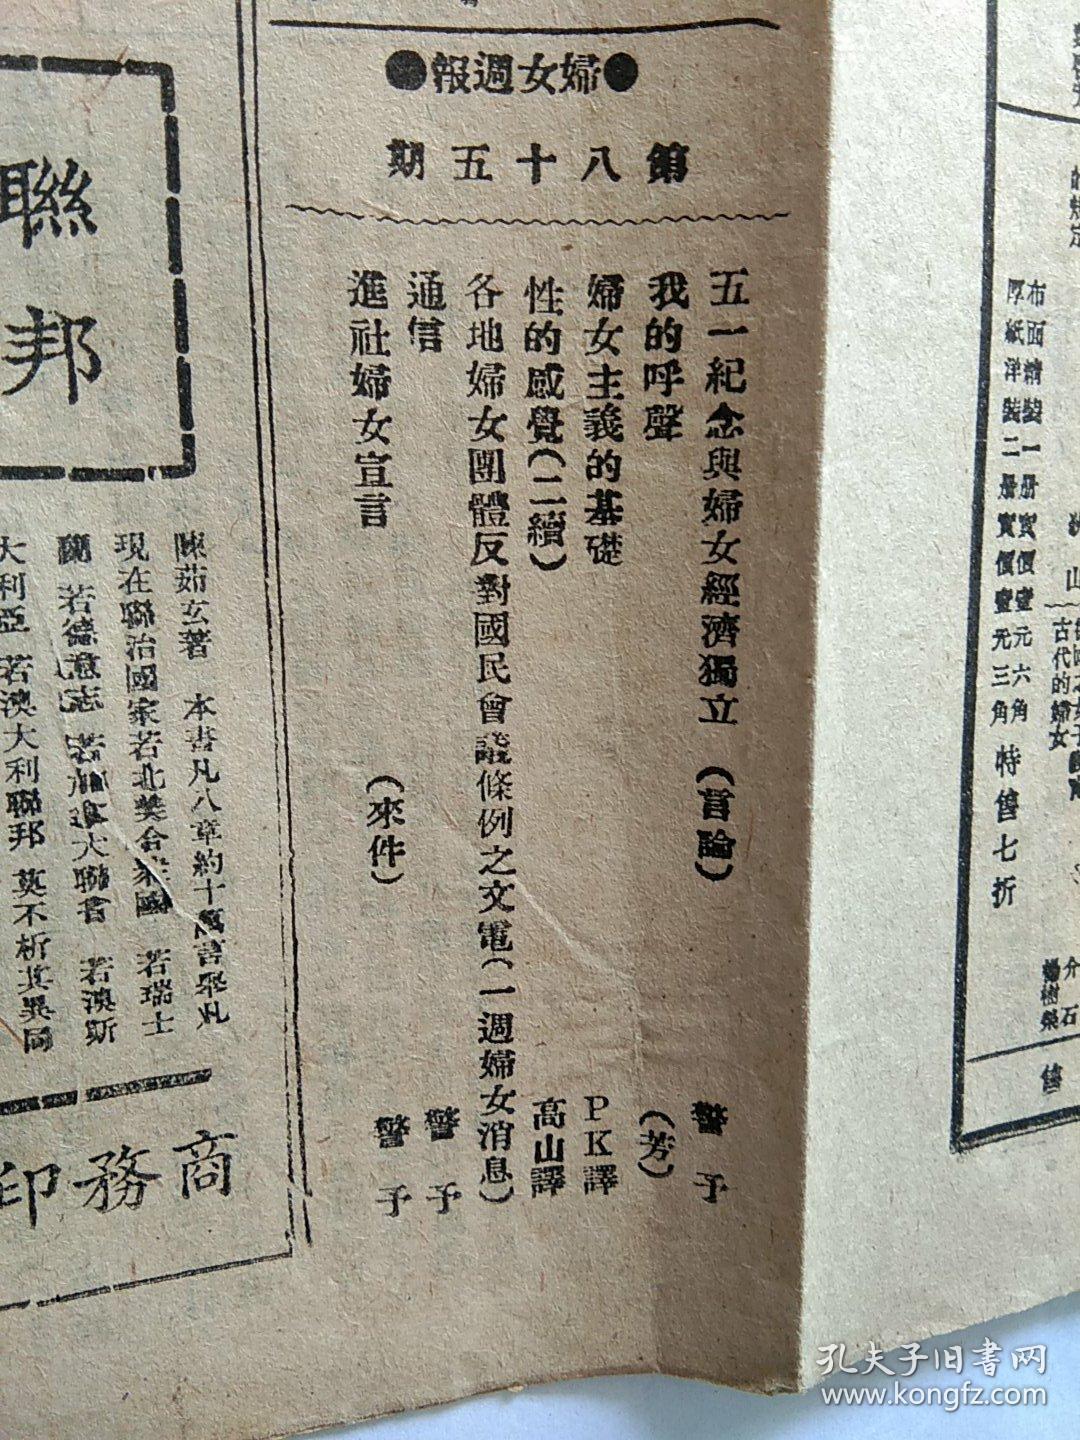 ●婦女週報●
第八十五期
五一紀念與婦女經濟獨立 (言論) 警予
我的呼聲 (芳)
婦女主義的基礎 PK譯
性的感覺(二續) 高山譯
各地婦女團體反對國民會議條例之文電(一週婦女消息)
通信 警予
進社婦女宣言 (來件) 警予
布面精裝一册實價壹元六角
厚紙洋裝二册實價壹元三角
特售七折
的規定
古代的婦女
介石
楊樹榮
售
聯邦
陳茹玄著 本書凡八章約十萬言舉凡
現在聯治國家若北美合衆國 若瑞士
若德意志 若加拿大聯書 若澳斯
大利亞 若澳大利聯邦 莫不析其異同
商務印
孔夫子旧书网
www.kongfz.com